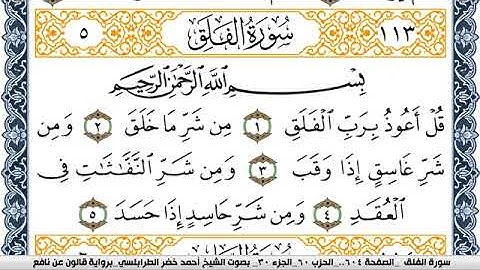 ١١٣ سُورَةُ الْفَلَقِ ٥
بِسْمِ اللَّهِ الرَّحْمَٰنِ الرَّحِيمِ
قُلْ أَعُوذُ بِرَبِّ الْفَلَقِ ١ مِن شَرِّ مَا خَلَقَ ٢ وَمِن
شَرِّ غَاسِقٍ إِذَا وَقَبَ ٣ وَمِن شَرِّ النَّفَّٰثَٰتِ فِي
الْعُقَدِ ٤ وَمِن شَرِّ حَاسِدٍ إِذَا حَسَدَ ٥
سورة الفلق _الصفحة ٦٠٤.._الحزب ٦٠_الجزء ٣٠_ بصوت الشيخ أحمد خضر الطرابلسي_برواية قالون عن نافع